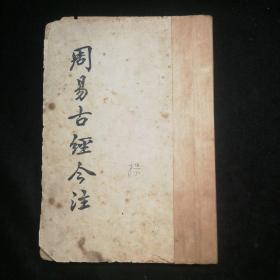 周易古經今注